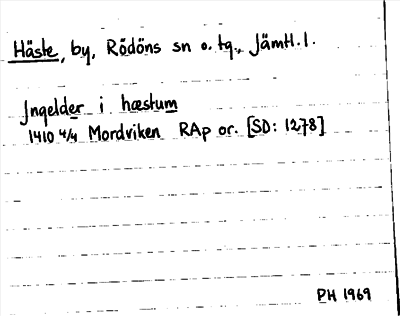 Häste, by, Rödöns sn o. tg., Jämtl. l.
Jngelder i hæstum
1410 4/4 Mordviken RAp or. [SD: 1278]
PH 1969